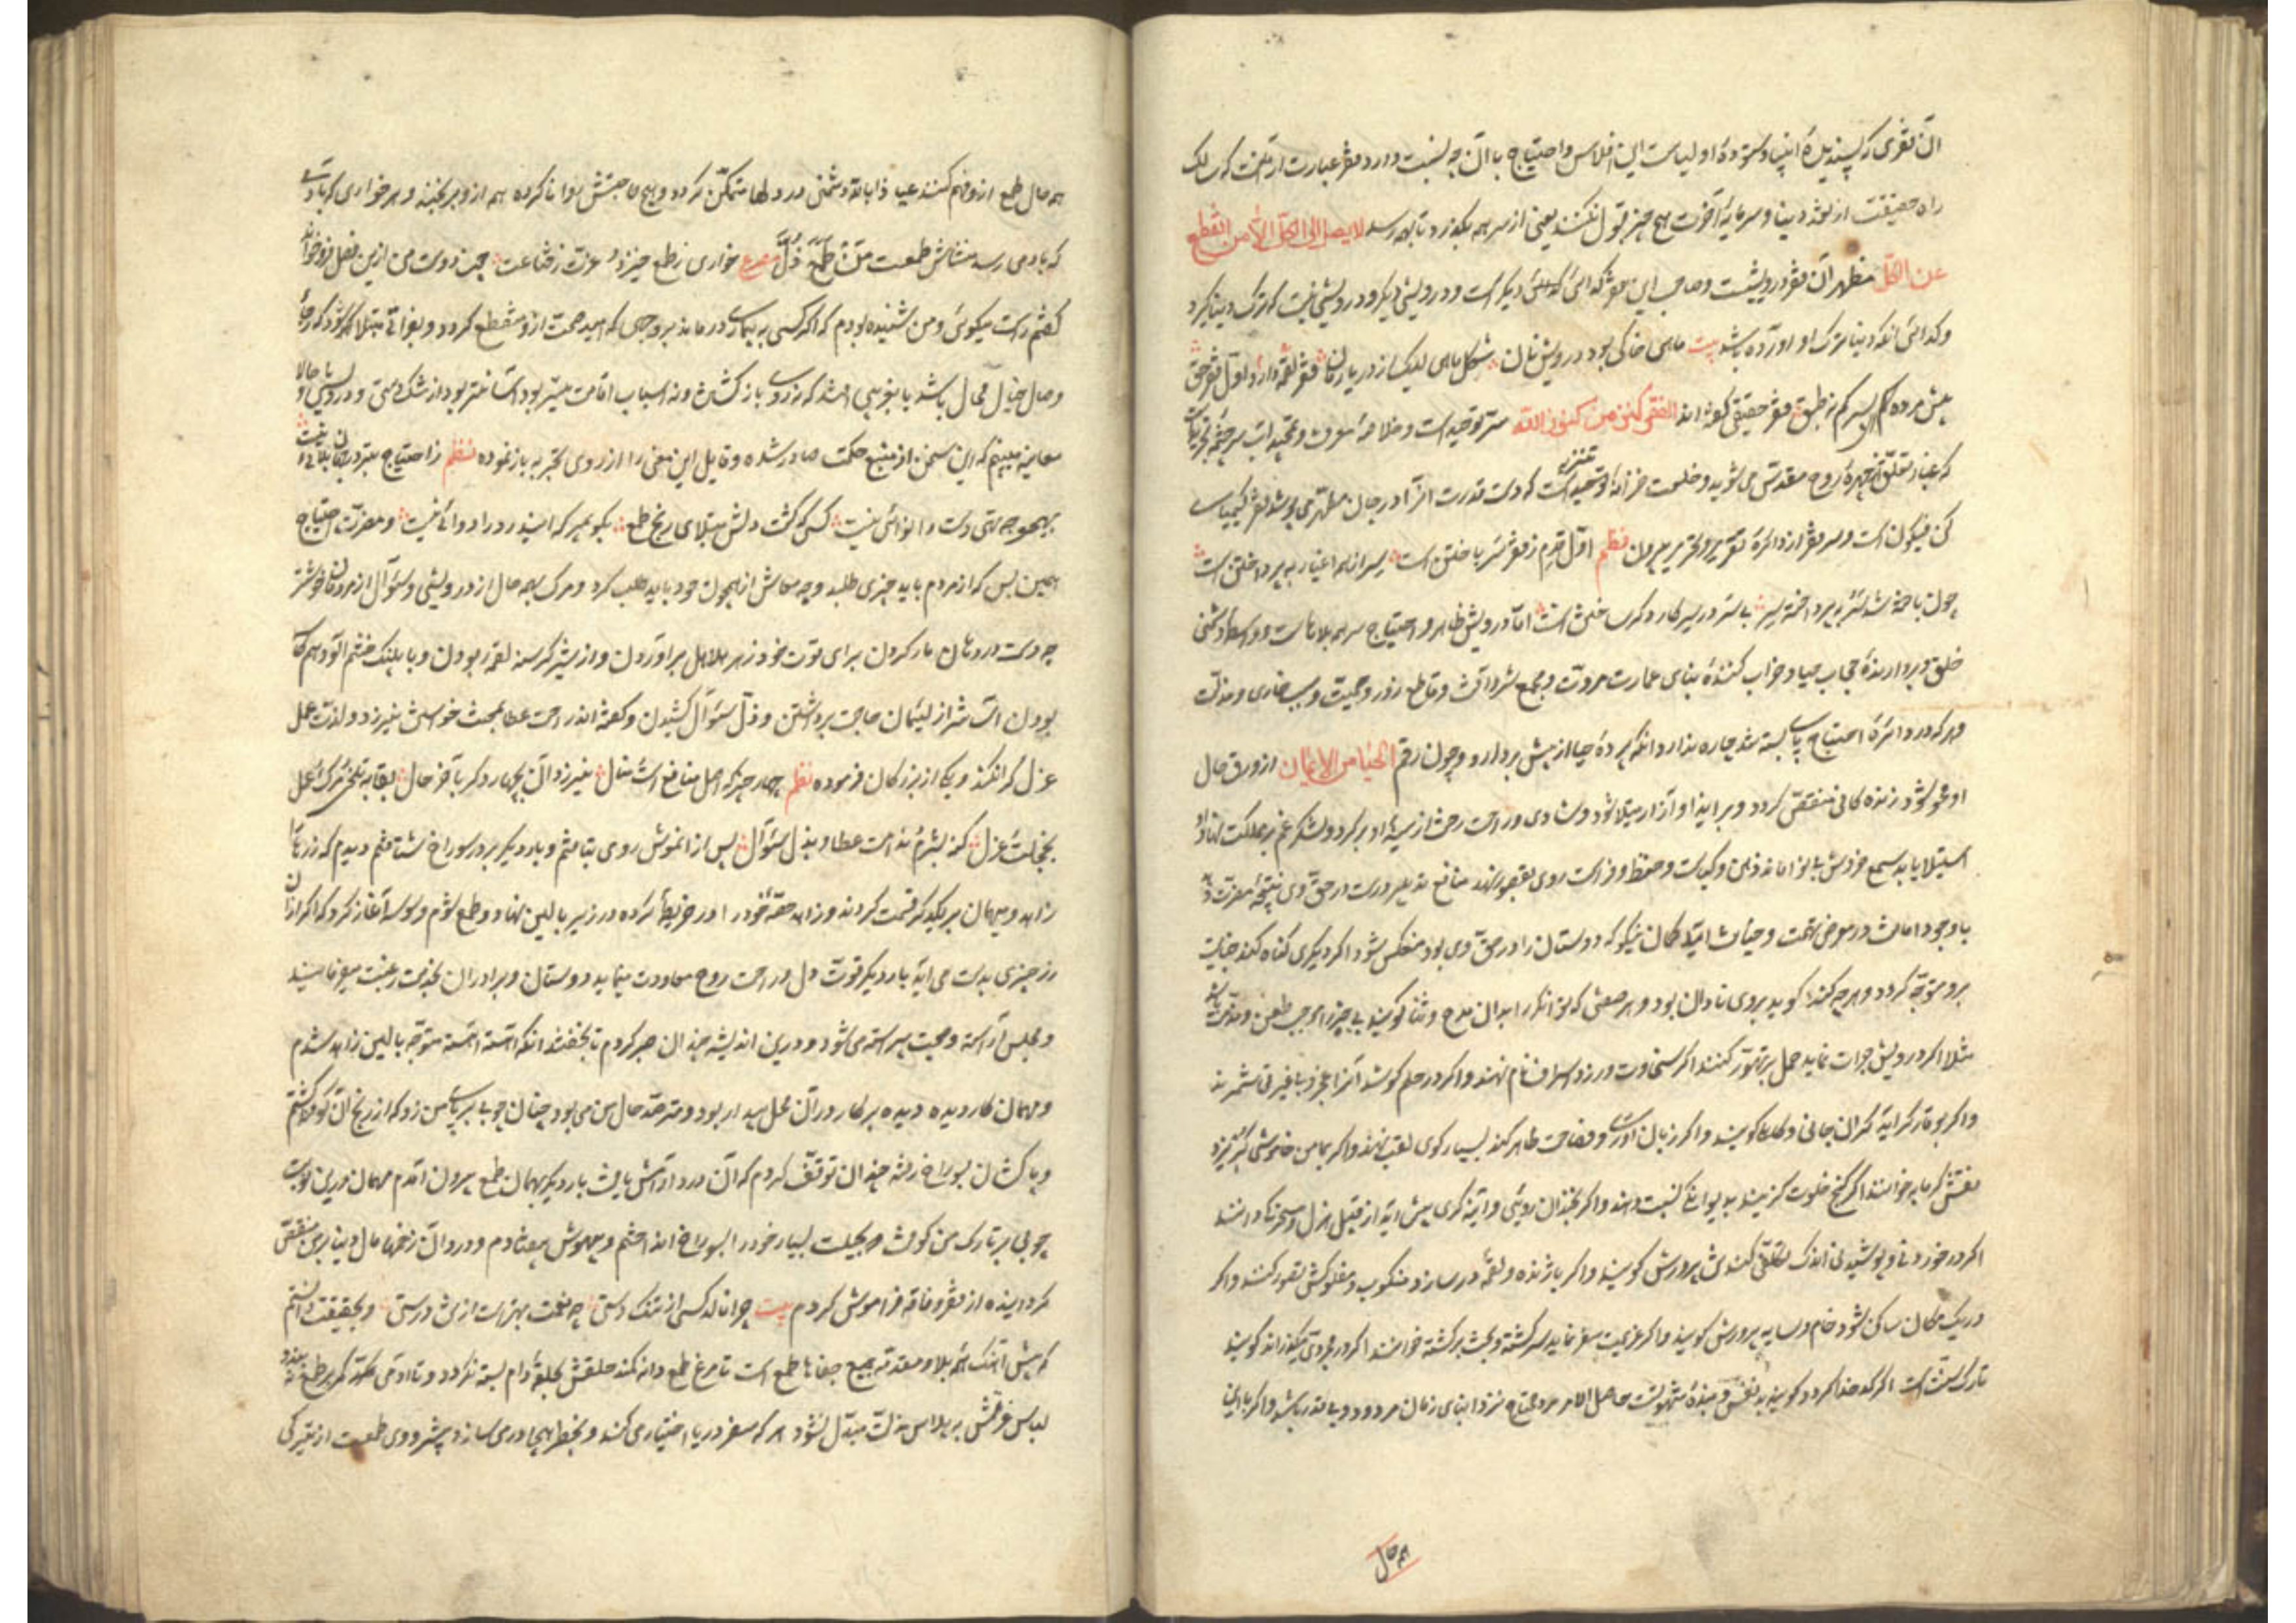 آن فقری که پسندیدهٔ انبیا و ستودهٔ اولیاست این افلاس و احتیاج با آن چه نسبت دارد فقر عبارت از آنست که سالک
راه حقیقت از نقد دنیا و سرمایهٔ آخرت هیچ چیز قبول نکند یعنی از سر همه بگذرد تا بهمه رسد لا یصل الی الکل الا من انقطع
عن الکل مظهر آن فقر درویشست و صاحب این فقر گدای گدایی دیگر است و درویشی دیگر و درویش نیست که ترک دنیا گیرد
و گدا آنکه دنیا ترک او آورده باشد بیت ماهی خاکی بود درویش نان شکل ماهی لیک از دریا رمان فقر لقمه دارد او نی فقر حق
پیش مرده کم نه طبق فقر حقیقی گفته اند الفقر کنز من کنوز الله سر توحید است و خلاصهٔ معرفت
که غبار تعلق از چهرهٔ روح مقدس می شوید و خلعت خزانه است که دست قدرت آنرا در جان مطهر می پوشد فقر کیمیای
کن فیکون است و سر فقر از دائرهٔ تقریر و تحریر بیرون نظم اول قدم ز فقر سر باختن است سر از هم اغیار بپرداختن است
چون باخته شد سر بپرداخته سر بی سر در سر کار درویش ظاهر و احتیاج سر همه بلاهاست و واسطهٔ دشمنی
خلق و بردارندهٔ حجاب حیا و خراب کنندهٔ بنای عمارت مروت و مجمع شر و آفت و قاطع زور و حمیت و سبب خواری و مذلت
و هر که در دائرهٔ احتیاج پای بسته شد چاره ندارد آنکه پردهٔ حیا از پیش بردارد و چون رقم الحیا من الایمان از ورق حال
او محو شود زندگانی منغص گردد و بر ایذا و آزار مبتلا شود و شادی و راحت رخت از سینهٔ او برگیرد و لشکر غم بر مملکت نهاد او
استیلا یابد شمع خردش بی نور ماند ذهن و کیاست و حفظ و فراست روی بقصور نهد منافع تدبیر درست در حق وی نتیجهٔ مضرت دهد
با وجود امانت در معرض تهمت و خیانت افتد گمان نیکو که دوستان را در حق وی بود منعکس شود اگر دیگری گناه کند جنایت
برو متوجه گردد و هر چه کند گوید بر وی تاوان بود و هر صفتی که توانگر را بدان مدح و ثنا گویند بی چیز را موجب طعن و مذمت باشد
مثلا اگر درویش جرات نماید حمل بر تهور کنند اگر سخاوت ورزد اسراف نام نهند و اگر در حلم کوشد آنرا عجز و بی غیرتی شمرند
و اگر بوقار گراید گران جانی و کاهل گویند و اگر زبان آوری و فصاحت ظاهر کند بسیار گوی لقب نهند و اگر بمامن خاموشی گریزد
نقش گرمابه خوانند اگر کنج خلوت گزیند بدیوانگی نسبت دهند و اگر بخندان رویی و آمیزگاری پیش آید از قبیل هزل و مسخرگی دانند
اگر در خوردنی و پوشیدنی اندک تکلفی کند تن پرورش گویند و اگر با ژنده و لقمه در سازد منکوب و مفلوکش تصور کنند و اگر
در یک مکان ساکن شود خام و سایه پرورش گویند و اگر عزیمت سفر نماید سرگشته و بخت برگشته خوانند اگر در مجردی گذراند گویند
تارک سنت است اگر کدخدا گردد گویند بندهٔ شهوتست حاصل الامر مرد محتاج نزد ابنای زمان مردود و بی قدر باشد و اگر با این
هم حال
هم حال طمع ازو فهم کنند عیاذا بالله دشمنی در دلها متمکن گردد و هیچ حاجتش روا نا کرده همه ازو برنجند و هر خواری که با آدمی
که با آدمی رسد منشاش طمعست من طمع ذل مصرع خواری ز طمع خیزد و عزت ز قناعت چون دوست من این فصل فرو خواند
گفتم راست میگوئی و من شنیده بودم که اگر کسی به بیماری درماند بر وجهی که امید صحت ازو منقطع گردد و بفراقی مبتلا شود که رجاء
وصال خیال محال باشد یا بغربتی افتد که نه روی باز گشتن و نه اسباب اقامت میسر بود آسانتر بود از تنگ دستی و درویشی و حالا
معاینه میبینم که این سخن از منبع حکمت صادر شده و قایل این معنی را از روی تجربه باز نموده نظم ز احتیاج بتر در جهان بلائی نیست
بهیچ وجه تهی دست را نوائی نیست کسی که گشت دلش مبتلای رنج طمع بگو بمیر که این درد را دوائی نیست و مضرت احتیاج
همین بس که از مردم باید چیزی طلبید و وجه معاش از همچون خود باید طلب کرد و مرگ بهمه حال از درویشی و سؤال از مردمان خوشتر
چه دست در دهان مار کردن برای قوت خود زهر هلاهل بر آوردن و از شیر گرسنه لقمه ربودن و با پلنگ خشم آلود هم کاسه
بودن آسانتر از لئیمان حاجت برداشتن و ذل سؤال کشیدن و گفته اند راحت عطا بمحنت خواستن نیرزد و لذت عمل
عزل کرا نکند و یکی از بزرگان فرموده نظم چهار چیز که اصل منافع است و منال نیرزد آن بچهار دگر بآخر حال بقا بتلخی مرگ و عمل
بخجلت عزل گنه بشرم ندامت عطا و بذل سؤال پس از آن موش روی بتافتم و بار دیگر بر در سوراخ شتافتم دیدم که زرها را
زاهد و مهمان بر یکدیگر قسمت کردند و زاهد حصهٔ خود را در خریطهٔ کرده در زیر بالین نهاد و طمع شوم وسوسه آغاز کرد که اگر از آن
زر چیزی بدست می آید بار دیگر قوت دل و راحت روح معاودت مینماید و دوستان و برادران بخدمت رغبت میفرمایند
و مجلس آراسته و صحبت پیراسته می شود و درین اندیشه چندان صبر کردم تا بخفتند آنگه آهسته آهسته متوجه بالین زاهد شدم
و مهمان کار دیده دیده بر کار در آن محل بیدار بود و مترصد حال من می بود چنان چوبی بر پای من زد که از رنج آن کوفته گشتم
و پا کشان بسوراخ رفته چندان توقف کردم که آن درد آرامش یافت بار دیگر بهمان طمع بیرون آمدم مهمان درین نوبت
چوبی بر تارک من کوفت و بحیلت بسیار خود را بسوراخ انداختم و بیهوش بیفتادم و درد آن زخمها مال دنیا بر من منغص
گردانیده از فقر و فاقه فراموش کردم بیت چرا نالد کسی از تنگ دستی چه نعمت بهتر است از تن درستی و بحقیقت دانستم
که پیش آهنگ همه بلا و مقدمهٔ جمیع جفاها طمع است تا مرغ طمع دانه نکند حلقش بحلقهٔ دام بسته نگردد و تا آدمی کمر بر طمع نه بندد
لباس عزتش بپلاس مذلت مبدل نشود هر که سفر دریا اختیار می کند و بخطر بهیجا در می سازد پیشرو وی طمعست از تیرگی